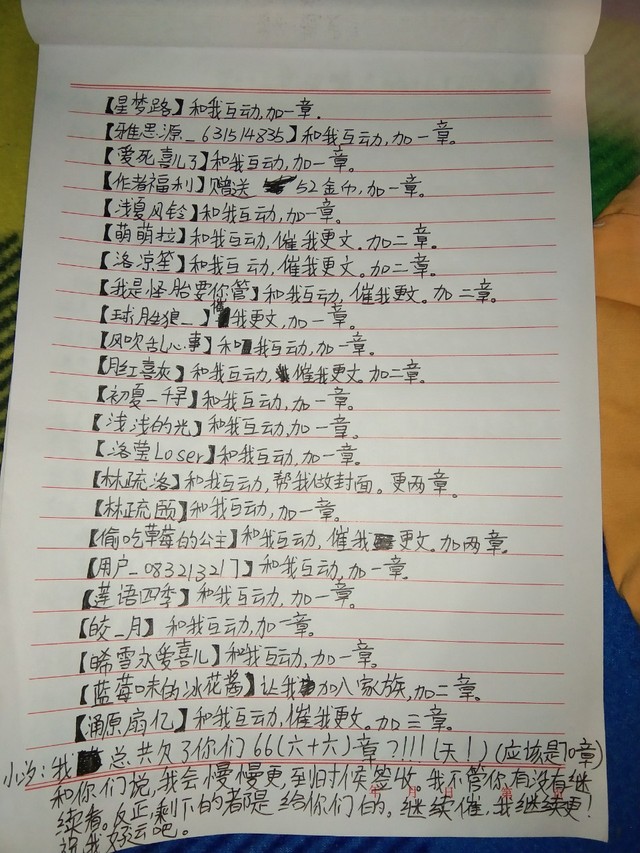 【星梦路】和我互动,加一章.
【雅思源_631514835】和我互动,加一章。
【爱死喜儿了】和我互动,加一章。
【作者福利】赠送 52金币,加一章。
【浅夏风铃】和我互动,加一章。
【萌萌拉】和我互动,催我更文.加二章。
【洛凉笙】和我互动,催我更文.加二章。
【我是怪胎要你管】和我互动,催我更文.加二章。
【球胜狼_】催我更文,加一章。
【风吹乱心事】和我互动,加一章。
【月红喜灰】和我互动,催我更文.加二章。
【初夏一千寻】和我互动,加一章。
【浅浅的光】和我互动,加一章。
【洛莹Loser】和我互动,加一章。
【林疏洛】和我互动,帮我做封面。更两章。
【林疏颐】和我互动,加一章。
【偷吃草莓的公主】和我互动,催我更文.加两章。
【用户_083213217】和我互动,加一章。
【莲语四季】和我互动,加一章。
【皎_月】和我互动,加一章。
【晞雪永爱喜儿】和我互动,加一章。
【蓝莓味的冰花酱】让我加入家族,加二章。
【涌原扇亿】和我互动,催我更文.加三章。
小汐:我 总共欠了你们66(六十六)章?!!!(天!)(应该是70章)
和你们说,我会慢慢更,到时候签收。我不管你有没有继
年 月 日 第 页
续看。反正,剩下的都是给你们的。继续催,我继续更!
祝我好运吧。